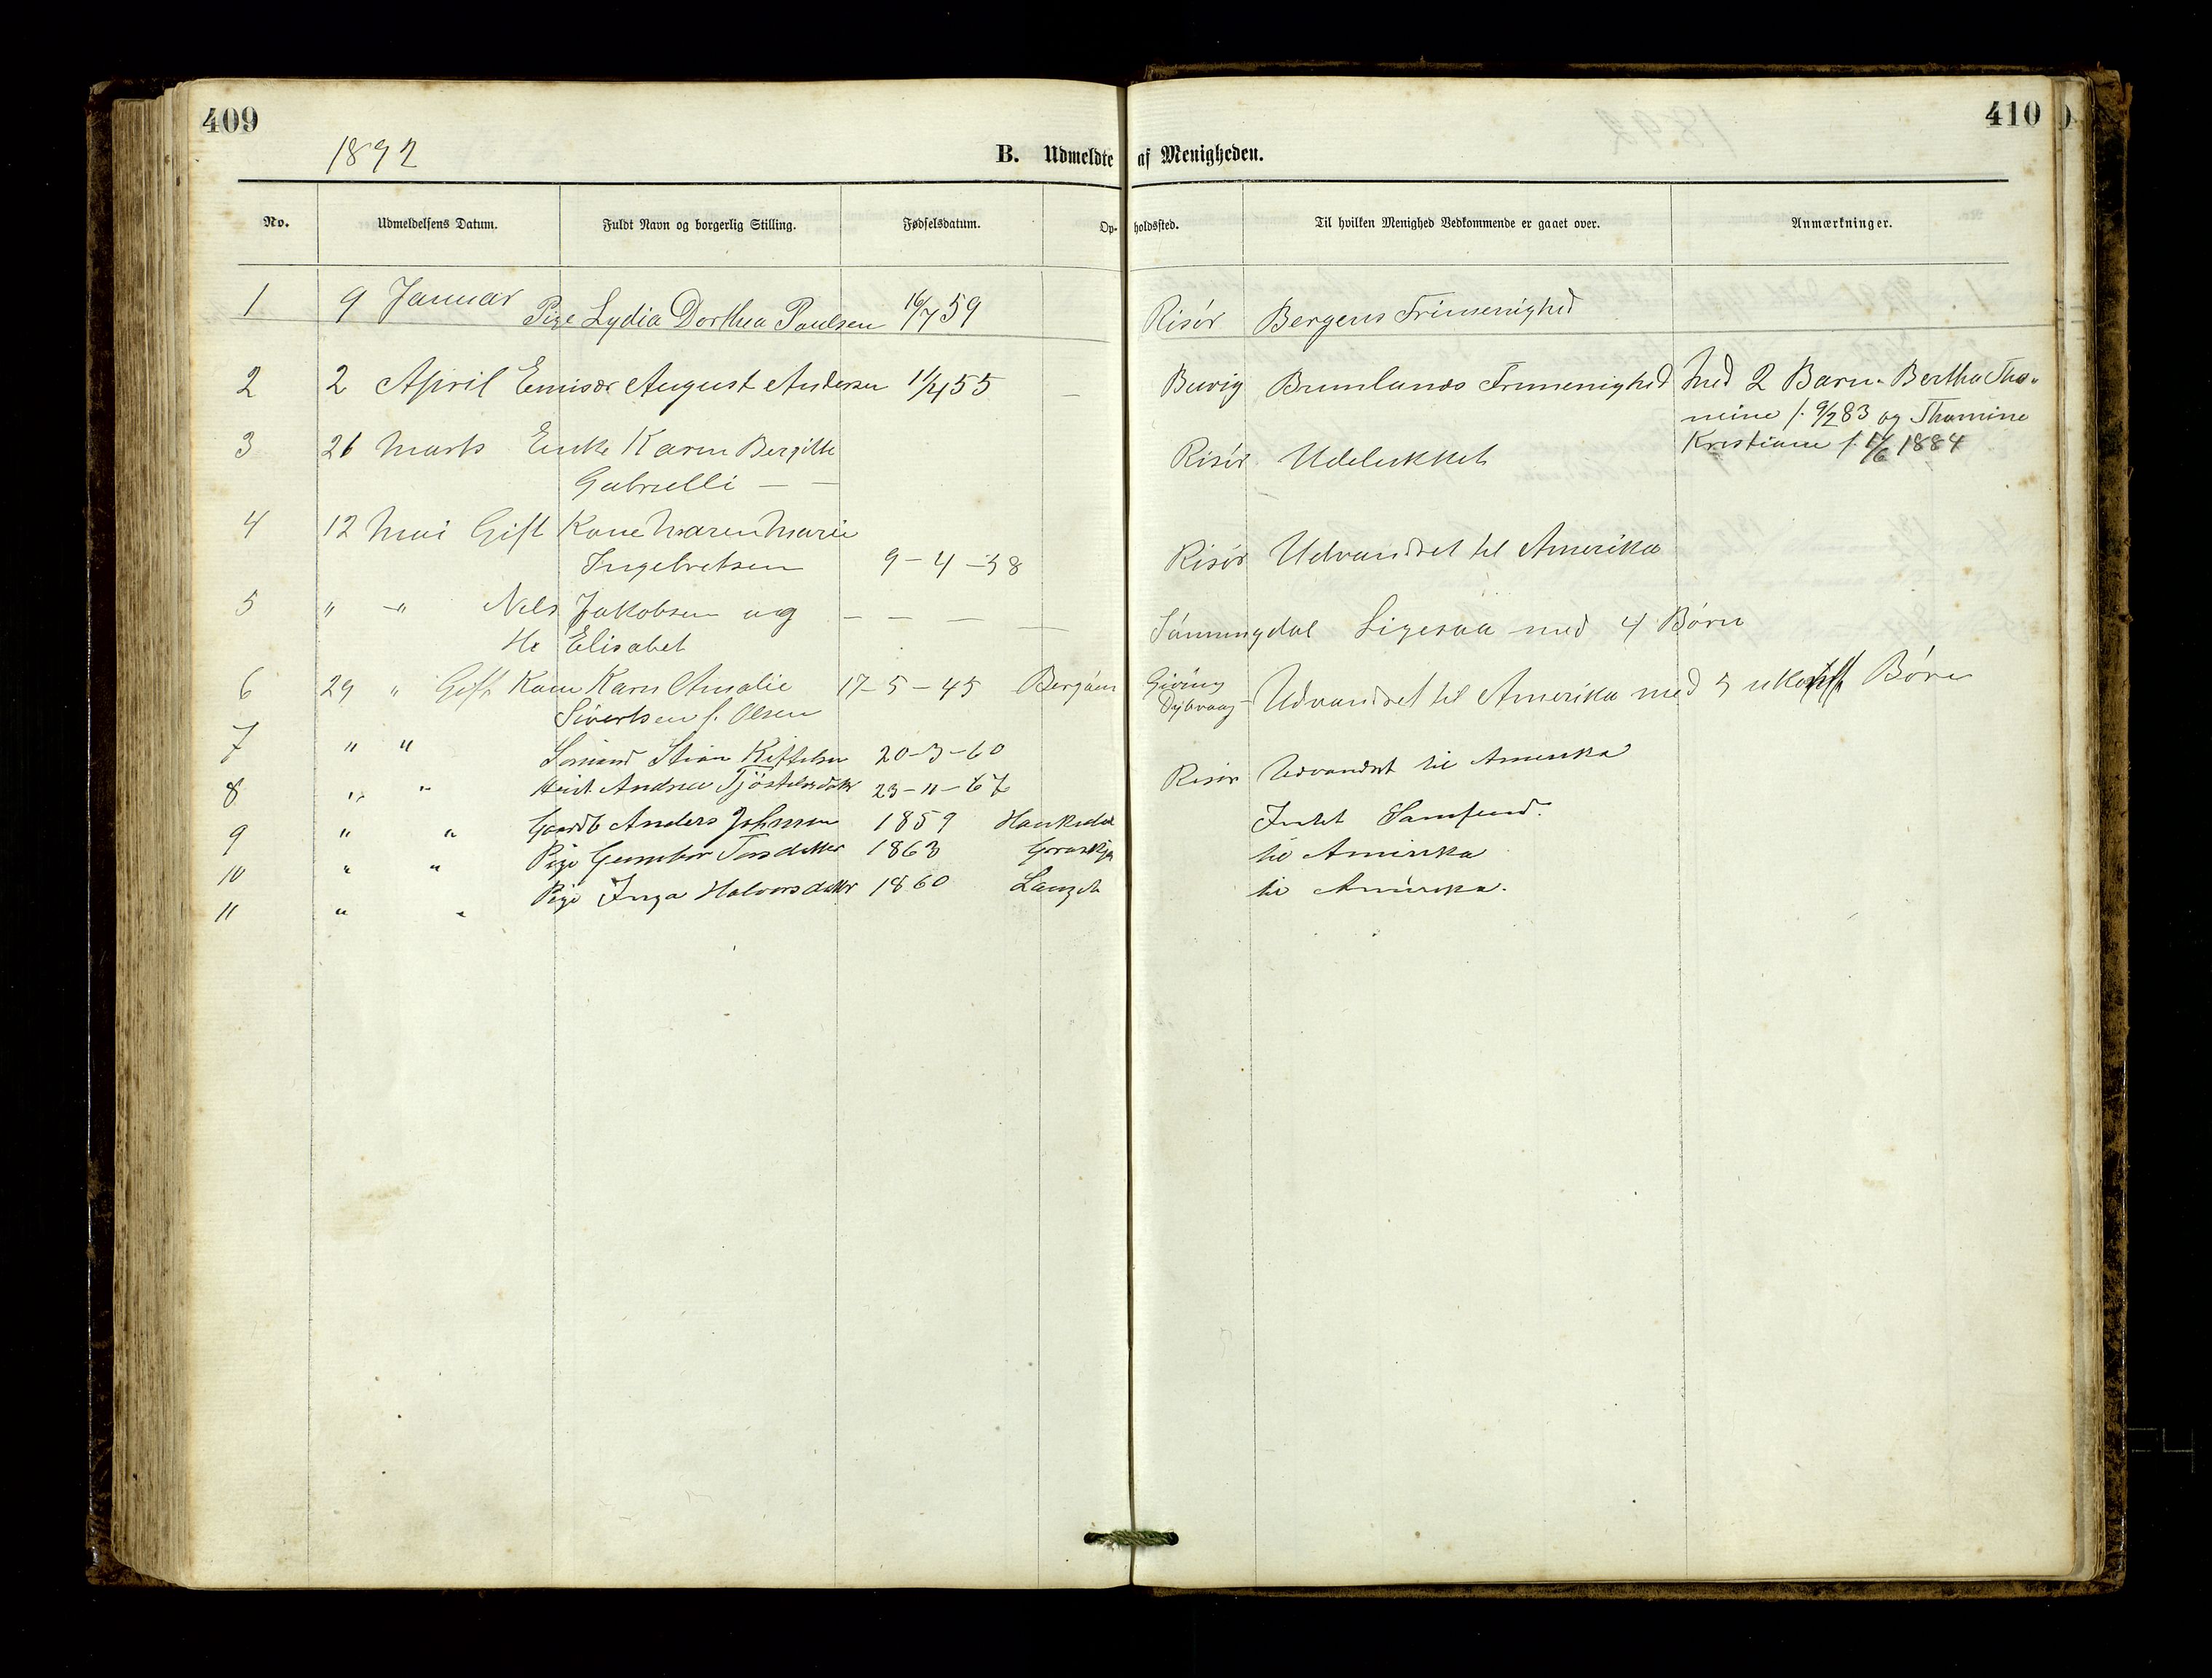 409
410
1892
B. Udmeldte af Menigheden.
No. Udmeldelsens Datum. Fuldt Navn og borgerlig Stilling. Fødselsdatum. Opholdssted. Til hvilken Menighed Vedkommende er gaaet over. Anmærkninger.
1 9 Januar Pige Lydia Dorthea Paulsen 16/7 59 Risør Bergens Frimenighed
2 2 April Emisær August Andersen 11/4 55 Buvig Brunlanæs Frimenighed Med 2 Barn. Bertha Tho-
mine f. 9/2 83 og Thomine
Kristiane f. 1884
3 21 Marts Enke Karen Bergitte Risør Udelukket
Gabrielli — —
4 12 Mai Gift Kone Maren Marie
Ingebretsen 9-4-58 Risør Udvandret til Amerika
5 " -" Nils Jakobsen og — — — — Sønningdal Ligesaa med 4 Børn
Elisabet
6 29 " Gift Kone Karen Amalie 17-5-45 Giving Udvandret til Amerika med 5 ukonf. Børn
Sivertsen f. Olsen Dybvaag
7 " " Sømand Kittelsen 20-3-60 Risør Udvandret til Amerika
8 " " Andrea 23-11-67
9 " " Gaardb Anders Johnsen 1859 Intet Samfund.
10 " " Pige Gunnbor 1863 til Amerika
11 " " Pige Inga Halvorsdatter 1860 til Amerika.